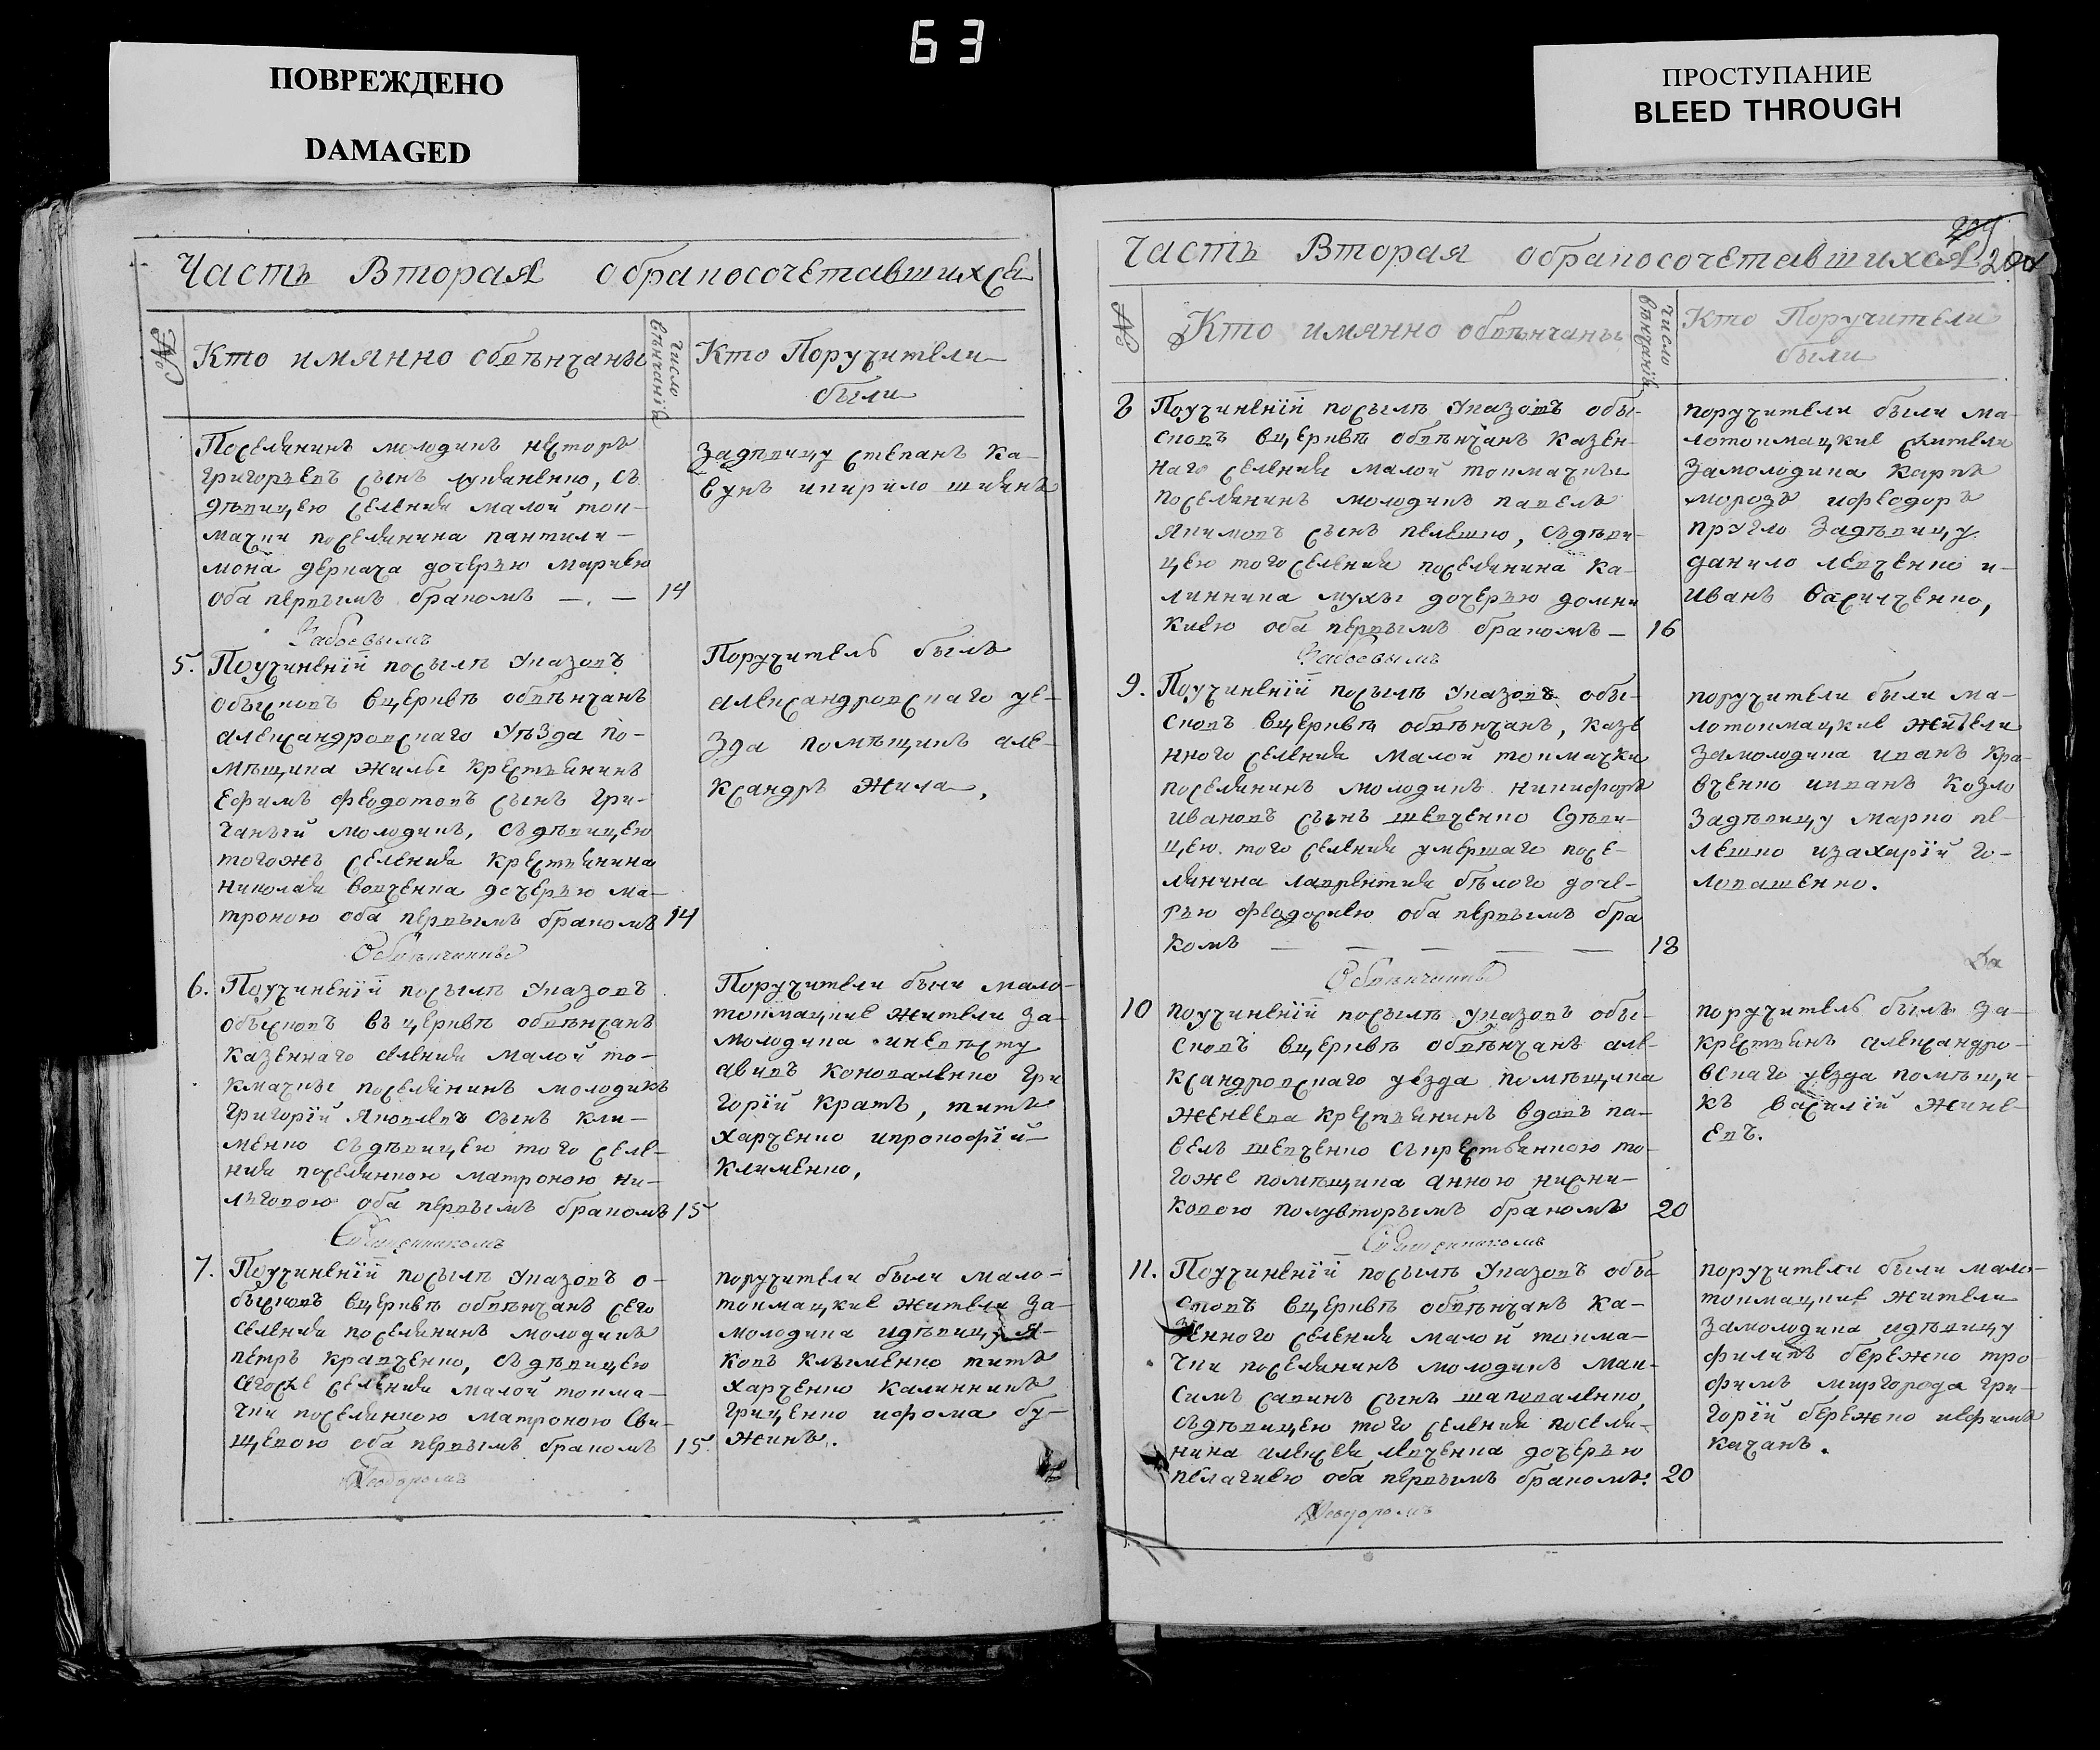 63
ПОВРЕЖДЕНО
DAMAGED
ПРОСТУПАНИЕ
BLEED THROUGH
Часть Вторая обракосочетавшихся
№
Кто имянно обвѣнчаны
число вѣнчанія
Кто Поручители
были
Поселянинъ молодикъ несторъ
григорьевъ сынъ лукяненко, съ
дѣвицею селенія малой ток-
мачки поселянина пантили-
мона деркача дочерью Маріею
оба первымъ бракомъ 14
Задѣвицу степанъ ка-
вунъ икирило шиянъ
5. Поучиненіи посылѣ Указовъ
обысковъ вцерквѣ обвѣнчанъ
александровскаго уѣзда по-
мѣщика жилы крестьянинъ
ефимъ феодотовъ сынъ гри-
чаный молодикъ, съ дѣвицею
тогожъ селенія крестьянина
николая вовченка дочерью ма-
троною оба первымъ бракомъ 14
Поручитель былъ
александровскаго уе-
зда помѣщикъ але-
ксандръ жила,
6. Поучиненіи посылѣ Указовъ
обысковъ въ церквѣ обвѣнчанъ
казеннаго селенія малой то-
кмачки поселянинъ молодикъ
григорій яковлевъ сынъ кли-
менко съ дѣвицею того селе-
нія поселянкою матроною ни-
оба первымъ бракомъ 15
Поручители были мало-
токмацкие жители за-
молодика иневѣсту
коноваленко гри
горій кратъ, титъ
харченко ипрокофій
клименко,
7. Поучиненіи посылѣ Указовъ о-
бысковъ вцерквѣ обвѣнчанъ сего
селенія поселянинъ молодикъ
петръ кравченко, съ дѣвицею
селенія малой токма-
чки поселянкою матроною сви-
щевою оба первымъ бракомъ 15.
поручители были мало-
токмацкие жители за-
молодика идѣвицу я-
ковъ клыменко титъ
харченко калинникъ
гриценко ифома бу-
жинъ.
Часть Вторая обракосочетавшихся
№
Кто имянно обвѣнчаны
число вѣнчанія
Кто Поручители
были
8 Поучиненіи посылѣ Указовъ обы-
сковъ вцерквѣ обвѣнчанъ казен-
наго селенія малой токмачки
поселянинъ молодикъ павелъ
якимовъ сынъ пелешко, съдѣви-
цею того селенія поселянина ка-
линника мухи дочерью домни
киею оба первымъ бракомъ 16
поручители были ма-
лотокмацкие жители
замолодика карпъ
морозъ ифеодоръ
кругло задѣвицу
данило левченко и-
иванъ василченко,
9. Поучиненіи посылѣ указовъ обы-
сковъ вцерквѣ обвѣнчанъ, казе
нного селенія малой токмачки
поселянинъ молодикъ никифоръ
ивановъ сынъ шевченко сдѣви-
цею того селенія умершаго посе-
лянина лаврентия бѣлого доче-
рью феодосиею оба первымъ бра
комъ 18
поручители были ма-
лотокмацкие жители
замолодика иванъ кра-
вченко ииванъ козло
задѣвицу марко пе-
лешко изахарій го-
ловашенко.
10 поучиненіи посылѣ указовъ обы-
сковъ вцерквѣ обвѣнчанъ але-
ксандровскаго уезда помѣщика
крестьянинъ вдовъ па-
велъ шевченко съкрестьянкою то-
гоже помѣщика анною
ковою полувторымъ бракомъ 20
поручитель былъ за-
крестьянъ александро-
вскаго уезда помѣщи-
къ василій жине-
евъ.
11. Поучиненіи посылѣ Указовъ обы-
сковъ вцерквѣ обвѣнчанъ ка-
зенного селенія малой токма-
чки поселянинъ молодикъ мак-
симъ савинъ сынъ шаповаленко,
съдѣвицею того селенія поселя-
нина алексея левченка дочерью
пелагиею оба первымъ бракомъ. 20
поручители были мало-
токмацкие жители
замолодика идѣвицу
филипъ бережко тро-
фимъ миргорода гри-
горій бережко иефимъ
качанъ.